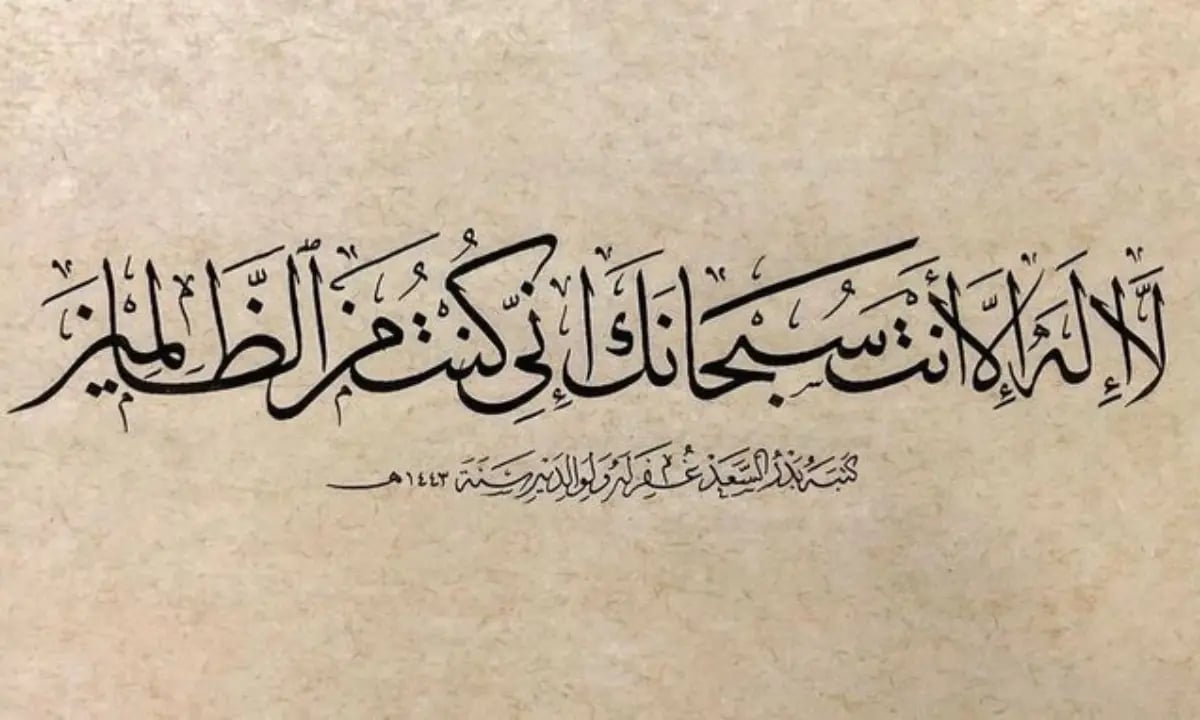 لَّا إِلَهَ إِلَّا أَنتَ سُبْحَانَكَ إِنِّي كُنتُ مِنَ ٱلظَّالِمِينَ
كتبه بدر السعد غفر له ولوالديه سنة ١٤٤٣هـ